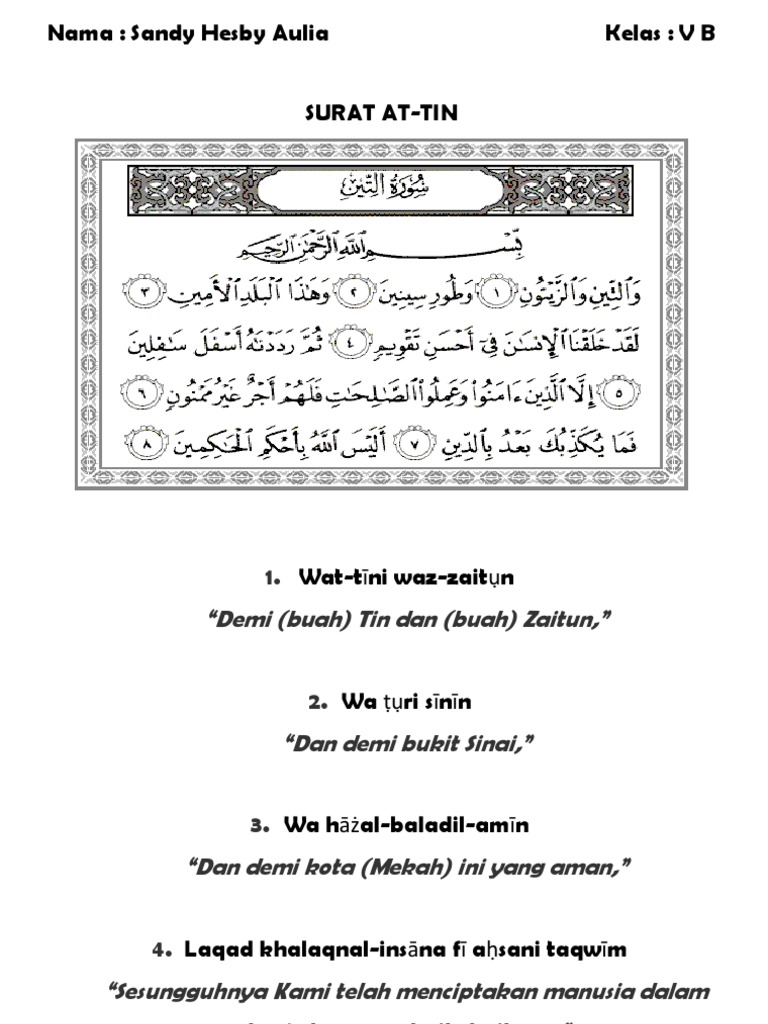 Nama : Sandy Hesby Aulia Kelas : V B
SURAT AT-TIN
سُورَةُ التِّينِ
بِسْمِ اللَّهِ الرَّحْمَٰنِ الرَّحِيمِ
وَالتِّينِ وَالزَّيْتُونِ ١ وَطُورِ سِينِينَ ٢ وَهَٰذَا الْبَلَدِ الْأَمِينِ ٣
لَقَدْ خَلَقْنَا الْإِنسَٰنَ فِىٓ أَحْسَنِ تَقْوِيمٍ ٤ ثُمَّ رَدَدْنَٰهُ أَسْفَلَ سَٰفِلِينَ
٥ إِلَّا الَّذِينَ ءَامَنُوا وَعَمِلُوا الصَّٰلِحَٰتِ فَلَهُمْ أَجْرٌ غَيْرُ مَمْنُونٍ ٦
فَمَا يُكَذِّبُكَ بَعْدُ بِالدِّينِ ٧ أَلَيْسَ اللَّهُ بِأَحْكَمِ الْحَٰكِمِينَ ٨
1. Wat-tīni waz-zaitụn
“Demi (buah) Tin dan (buah) Zaitun,”
2. Wa ṭụri sīnīn
“Dan demi bukit Sinai,”
3. Wa hāżal-baladil-amīn
“Dan demi kota (Mekah) ini yang aman,”
4. Laqad khalaqnal-insāna fī aḥsani taqwīm
“Sesungguhnya Kami telah menciptakan manusia dalam